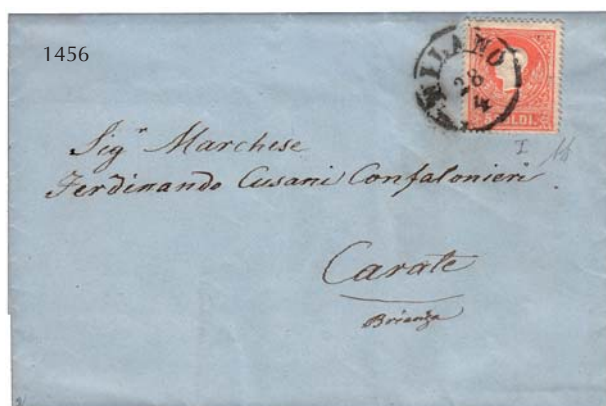 1456
MILANO
28
4
5 SOLDI.
I
Sig.r Marchese
Ferdinando Cusani Confalonieri
Carate
Brianza